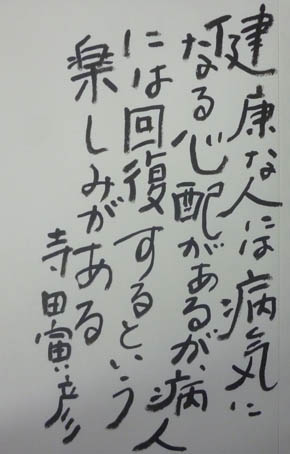 健康な人には病気に
なる心配があるが、病人
には回復するという
楽しみがある
寺田寅彦